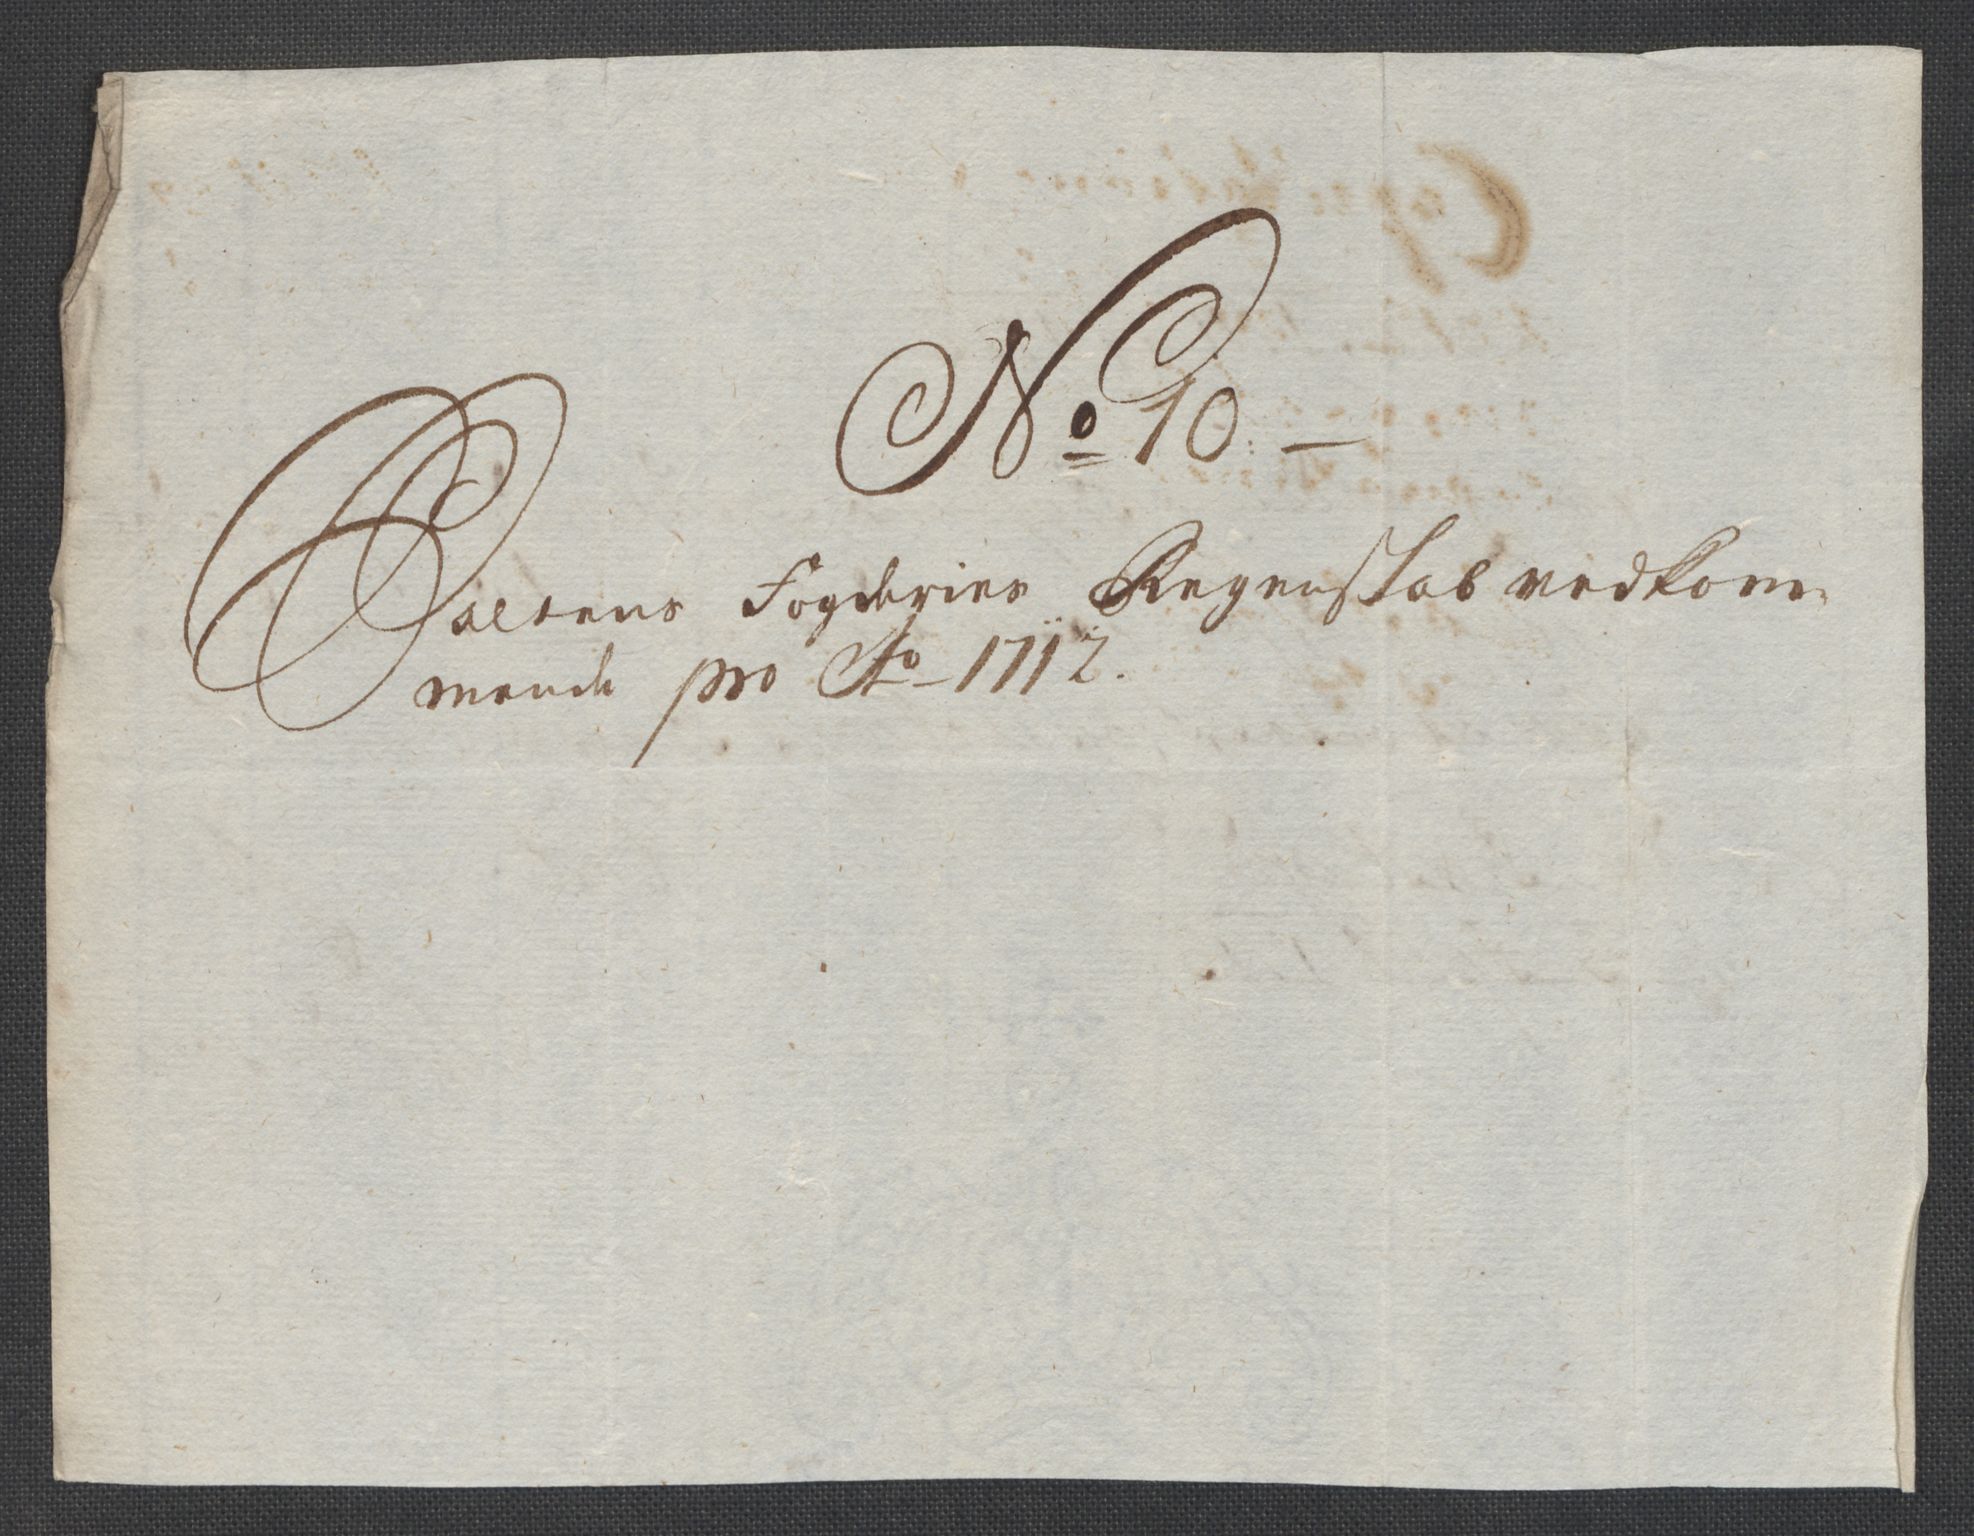 No 10 —
Saltens Fogderies Regenskab vedkom-
mende pro Ao 1712.